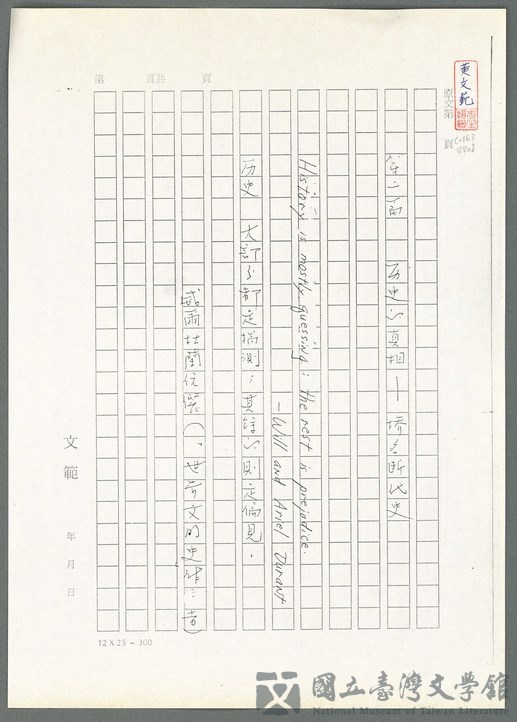 黄文範
原文第 頁
第 頁共 頁
第二面 历史的真相——橋名斷代史
History is mostly guessing; the rest is prejudice.
—Will and Ariel Durant
历史 大部分都是揣測；其餘的則是偏見。
威爾杜蘭伉儷(「世界文明史」作者)
文範 年 月 日
12 X 25 = 300
國立臺灣文學館
National Museum of Taiwan Literature